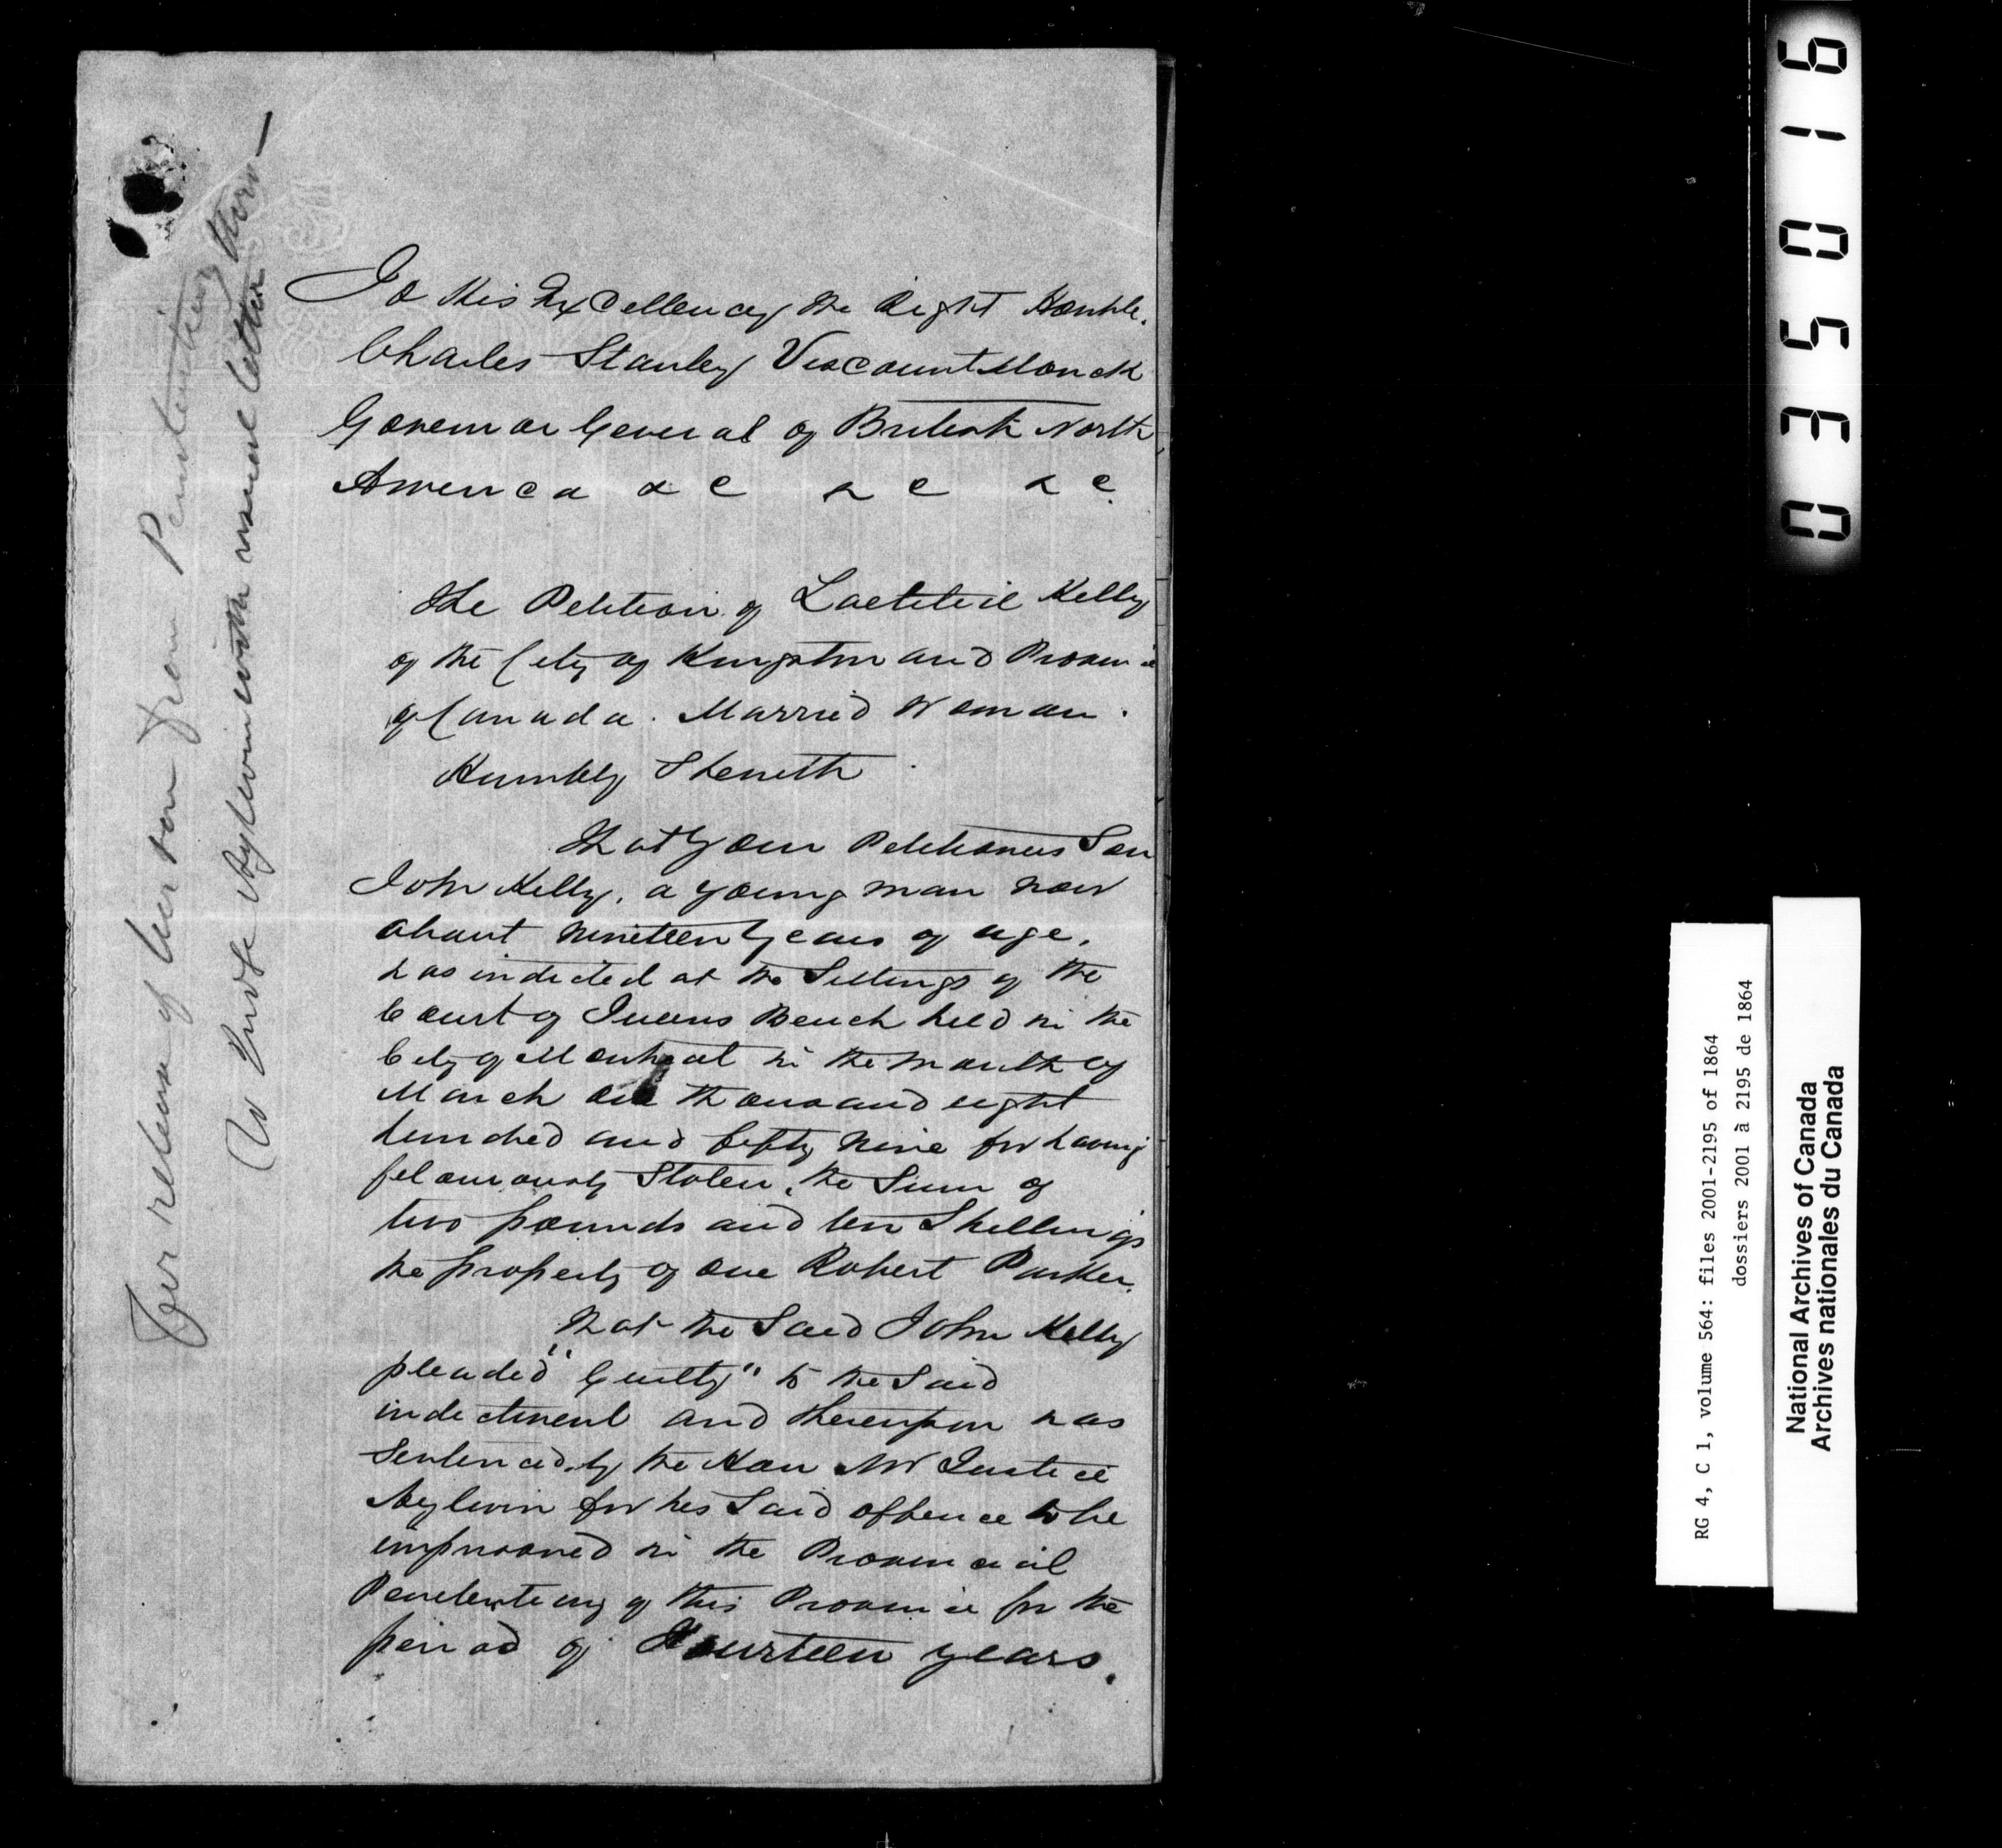 To His Excellency the Right Honble.
Charles Stanley Viscount Monck
Governor General of British North
America &c &c &c
The Petition of Laetitia Kelly
of the City of Kingston and Province
of Canada. Married Woman.
Humbly Sheweth
That your Petitioners Son
John Kelly, a young man now
about nineteen years of age,
was indicted at the Sittings of the
Court of Queens Bench held in the
City of Montreal in the month of
March one thousand eight
hundred and fifty nine for having
feloniously Stolen, the Sum of
two pounds and ten Shillings
the property of one Robert Parker.
That the Said John Kelly
pleaded "Guilty" to the Said
indictment and thereupon was
Sentenced by the Hon Mr Justice
Aylwin for his Said offence to be
imprisoned in the Provincial
Penitentiary of this Province for the
period of Fourteen years.
For release of her son from Penitentiary
To Judge Aylwin with usual letter
0 3 5 0 1 6
RG 4, C 1, volume 564: files 2001-2195 of 1864
dossiers 2001 à 2195 de 1864
National Archives of Canada
Archives nationales du Canada